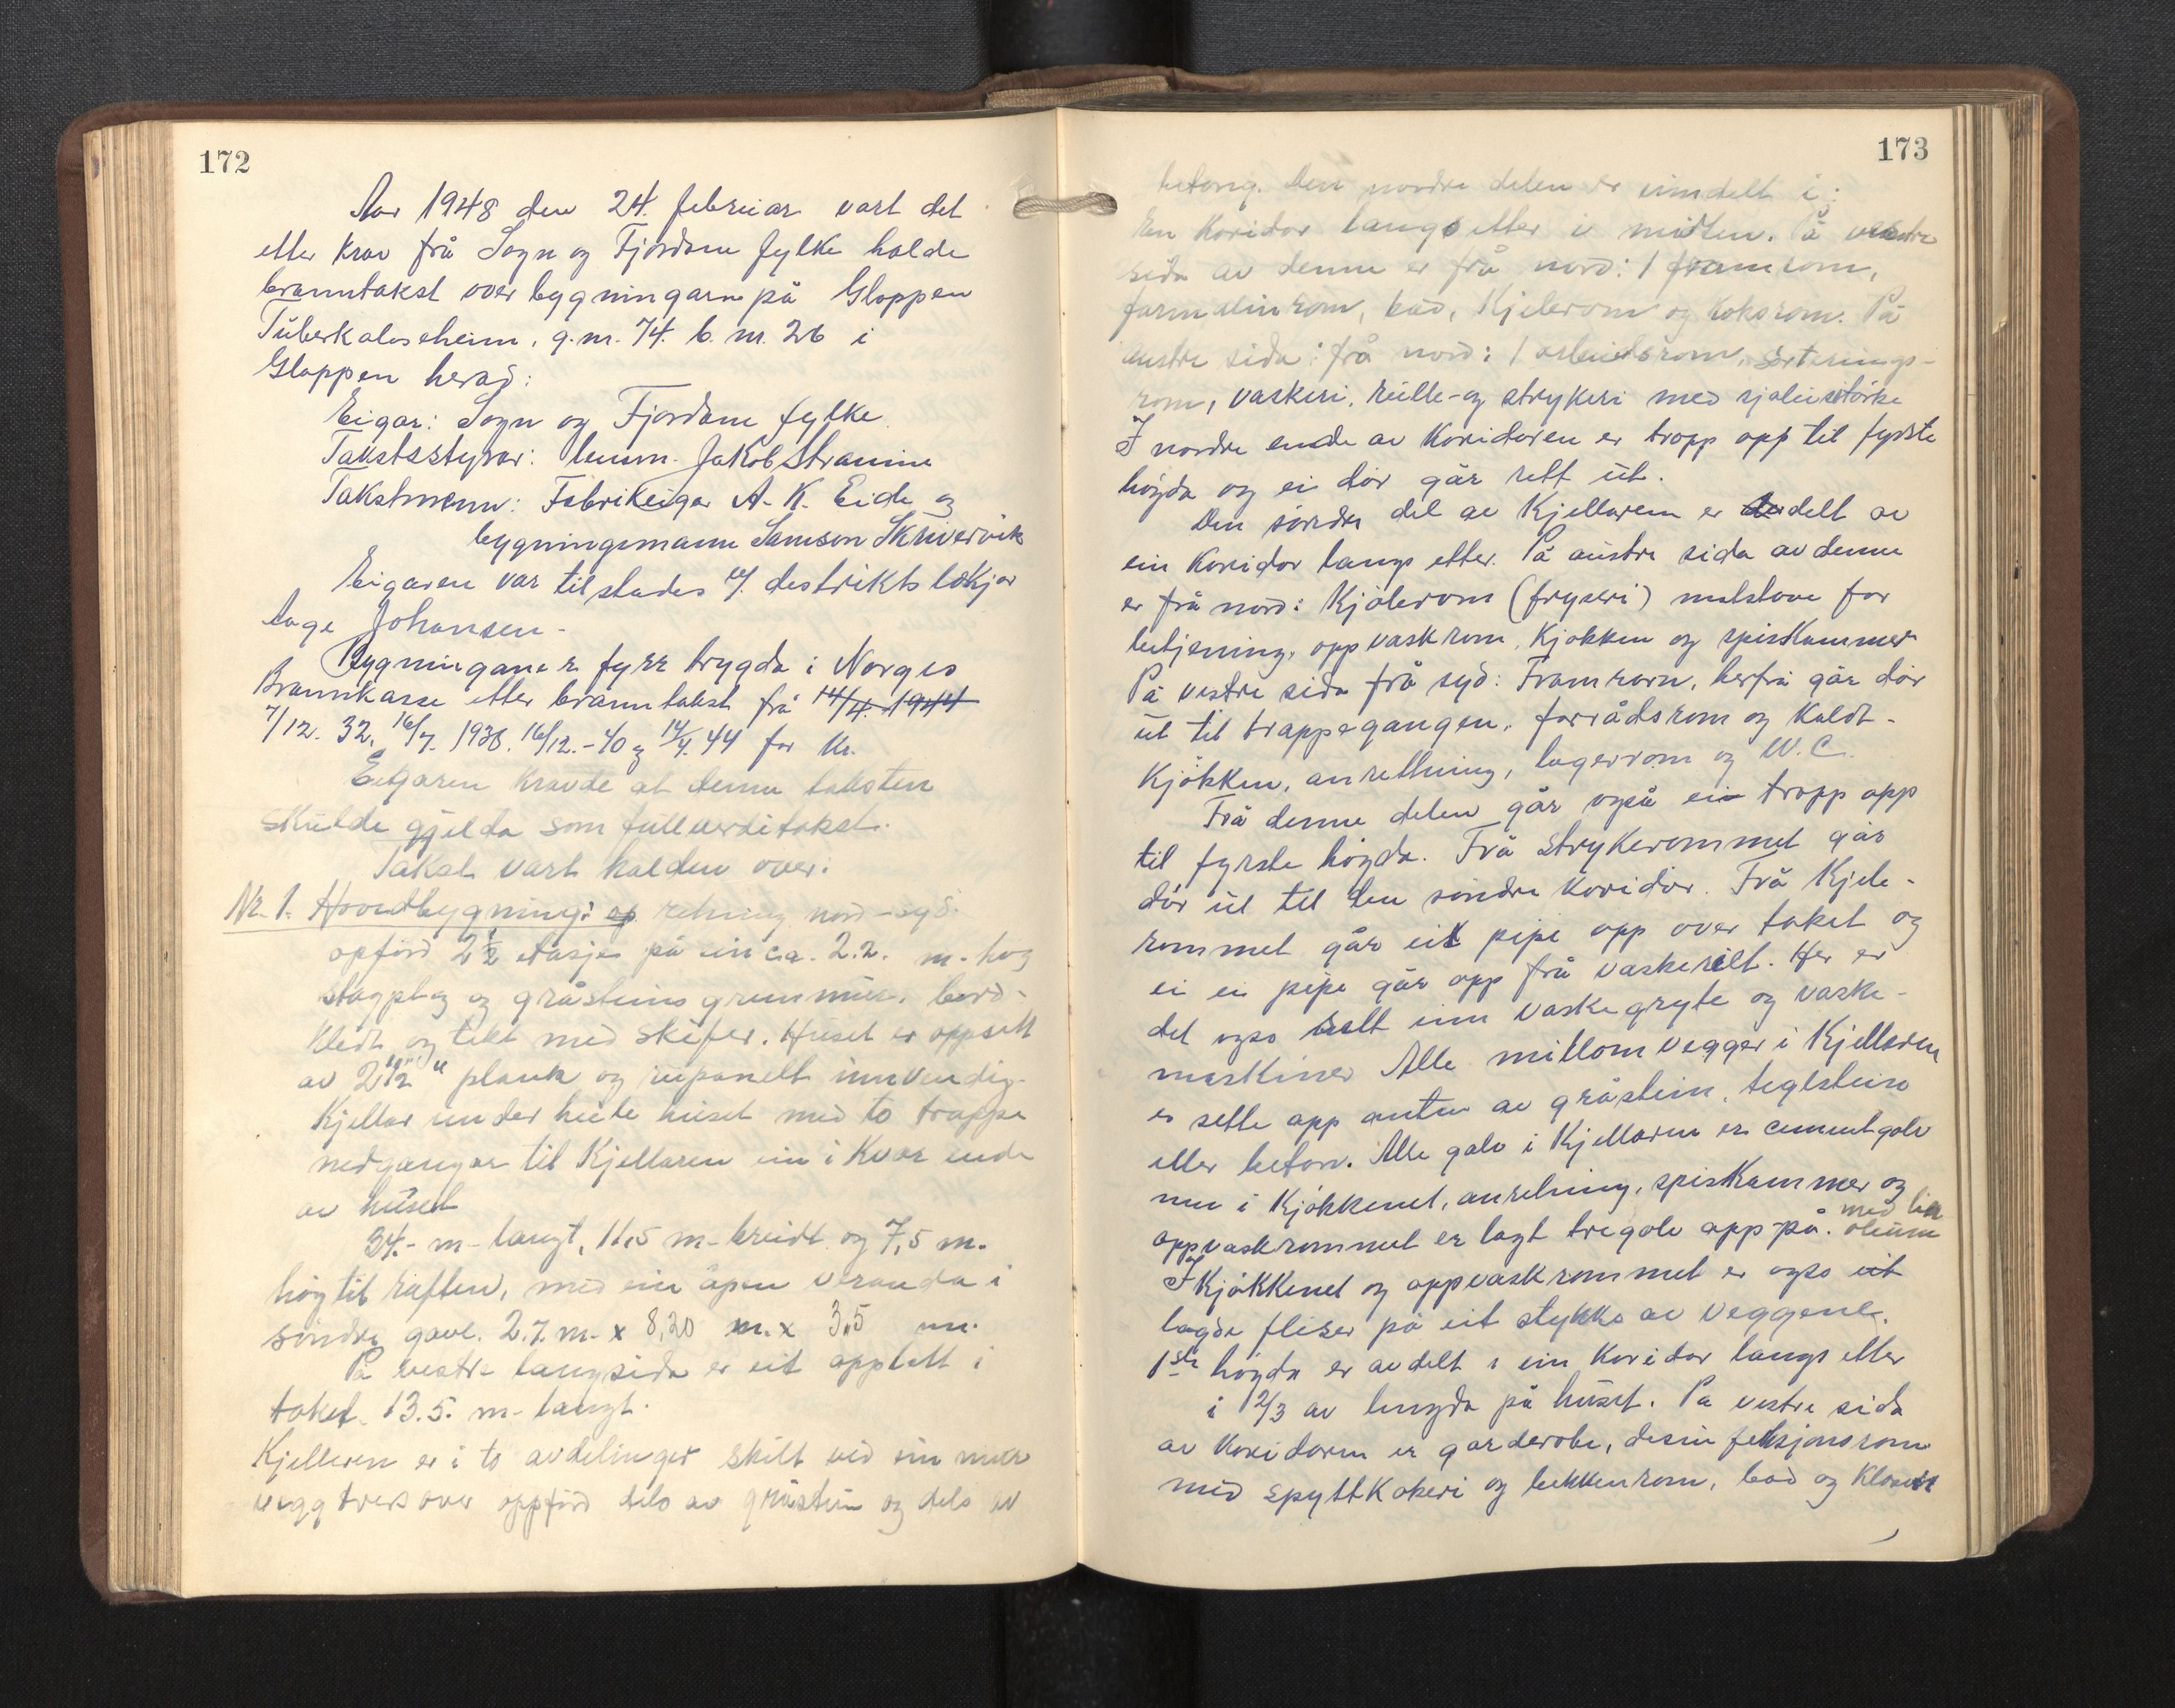 172
Aar 1948 den 24. februar vart det
etter krav frå Sogn og Fjordane fylke halde
branntakst over bygningane på Gloppen
Tuberkuloseheim, g.nr. 74. b. nr. 26 i
Gloppen herad:
Eigar: Sogn og Fjordane fylke.
Takstsstyrar: lensm. Jakob Straume
Takstmenn: Fabrikeigar A. K. Eide og
bygningsmann Samson Skrivervik
Eigaren var tilstades v/. destrikts lækjar
Johansen.
Bygningane er fyrr trygda i Norges
Brannkasse etter branntakst frå 14/4. 1944
7/12. 32, 16/7. 1938. 16/12. - 40 og 14/4. 44 for kr.
Eigaren kravde at denne taksten
skulde gjelda som fullverditakst.
Takst vart halden over:
Nr. 1. Hovedbygning: retning nord-syd.
opförd 2 1/2 etasjer på ein ca. 2.2. m. høg
og gråsteins grunnmur, bord-
kledt og tekt med skifer. Huset er oppsett
av 2 1/2" plank og rupanelt innvendig.
Kjellar under heile huset med to trappe
nedgangar til Kjellaren ein i kvar ende
av huset
34.- m. langt, 11.5 m. breidt og 7,5 m.
høg til raften, med ein åpen veranda i
söndre gavl. 2.7. m. x 8,20 m. x 3,5 m.
På vestre langsida er eit opplett i
taket 13.5. m. langt.
Kjelleren er i to avdelinger skilt ved ein mur
vegg tvers over oppförd dels av gråstein og dels av
173
betong. Den nordre delen er inndelt i:
Ein Koridor langs etter i midten. På vestre
sida av denne er frå nord: 1 framrom,
formalinrom, bad, Kjelerom og koksrom. På
austre sida: frå nord: 1 arbeidsrom, sorterings-
rom, vaskeri, rulle- og strykeri med
I nordre ende av Koridoren er tropp opp til fyrste
högda og ei dör går rett ut.
Den söndre del av Kjellaren er delt av
ein Koridor langs etter. På austre sida av denne
er frå nord: Kjölerom (fryseri) matstove for
betjening, oppvaskrom, Kjökken og spiskammer
På vestre sida frå syd: Framrom, herfrå går dör
ut til trappegangen, forrådsrom og kaldt-
Kjökken, anrettning, lagerrom og W.C.
Frå denne delen går også ei tropp opp
til fyrste högda. Frå strykerommet går
dör ut til den söndre koridor. Frå Kjele-
rommet går ei pipe opp over taket og
ei ei pipe går opp frå vaskeriet. Her er
det ogso sett inn vaskegryte og vaske-
maskiner Alle millomvegger i Kjellaren
er sette opp anten av gråstein, teglsteins
eller beton. Alle golv i Kjellaren er cementgolv
men i Kjökkenet, anretning, spiskammer og
oppvaskrommet er lagt tregolv opp-på. med lin
oleum
I Kjökkenet og oppvaskrommet er ogso
lagde fliser på eit stykke av veggene.
1ste högda er avdelt i ein Koridor langs etter
i 2/3 av lengda på huset. På vestre sida
av koridoren er garderobe, desinfeksjonsrom
med spyttkokeri og bekkenrom, bad og Klosett